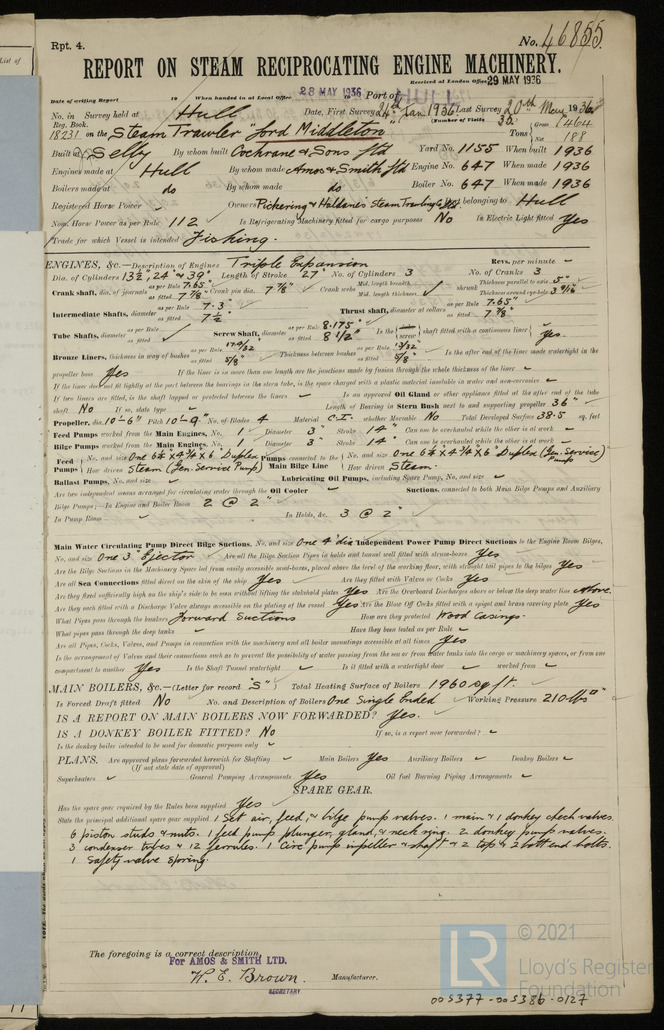 Rpt. 4.
No. 46855.
REPORT ON STEAM RECIPROCATING ENGINE MACHINERY.
Received at London Office 29 MAY 1936
Date of writing Report 19 When handed in at Local Office 28 MAY 1936 Port of HULL
No. in Survey held at Hull Date, First Survey 24th Jan. 1936 Last Survey 20th May 1936
Reg. Book. (Number of Visits 32)
18231 on the Steam Trawler Lord Middleton Tons Gross 464 Net 188
Built at Selby By whom built Cochrane & Sons Ltd Yard No. 1155 When built 1936
Engines made at Hull By whom made Amos & Smith Ltd Engine No. 647 When made 1936
Boilers made at do By whom made do Boiler No. 647 When made 1936
Registered Horse Power Owners Pickering & Haldane's Steam Trawling Co Ltd Port belonging to Hull
Nom. Horse Power as per Rule 112 Is Refrigerating Machinery fitted for cargo purposes No Is Electric Light fitted Yes
Trade for which Vessel is intended Fishing.
ENGINES, &c.—Description of Engines Triple Expansion Revs. per minute -
Dia. of Cylinders 13½" 24" & 39" Length of Stroke 27" No. of Cylinders 3 No. of Cranks 3
Crank shaft, dia. of journals as per Rule 7.65" as fitted 7⅞" Crank pin dia. 7⅞" Crank webs Mid. length breadth Mid. length thickness Thickness parallel to axis 5" Thickness around eye-hole 3 9/16"
Intermediate Shafts, diameter as per Rule 7.3" as fitted 7½" Thrust shaft, diameter at collars as per Rule 7.65" as fitted 7⅞"
Tube Shafts, diameter as per Rule as fitted Screw Shaft, diameter as per Rule 8.175" as fitted 8½" Is the screw shaft fitted with a continuous liner Yes.
Bronze Liners, thickness in way of bushes as per Rule as fitted 5/8" Thickness between bushes as per Rule as fitted 5/8" Is the after end of the liner made watertight in the
propeller boss Yes If the liner is in more than one length are the junctions made by fusion through the whole thickness of the liner -
If the liner does not fit tightly at the part between the bearings in the stern tube, is the space charged with a plastic material insoluble in water and non-corrosive -
If two liners are fitted, is the shaft lapped or protected between the liners - Is an approved Oil Gland or other appliance fitted at the after end of the tube
shaft No If so, state type - Length of Bearing in Stern Bush next to and supporting propeller 36"
Propeller, dia. 10'-6" Pitch 10'-9" No. of Blades 4 Material C.I. whether Moveable No Total Developed Surface 38.5 sq. feet
Feed Pumps worked from the Main Engines, No. 1 Diameter 3" Stroke 14" Can one be overhauled while the other is at work -
Bilge Pumps worked from the Main Engines, No. 1 Diameter 3" Stroke 14" Can one be overhauled while the other is at work -
Feed Pumps No. and size One 6½ x 4¾ x 6 Duplex How driven Steam (Gen. Service Pump) Pumps connected to the Main Bilge Line No. and size One 6½ x 4¾ x 6 Duplex (Gen. Service) How driven Steam.
Ballast Pumps, No. and size - Lubricating Oil Pumps, including Spare Pump, No. and size -
Are two independent means arranged for circulating water through the Oil Cooler - Suctions, connected to both Main Bilge Pumps and Auxiliary
Bilge Pumps;—In Engine and Boiler Room 2 @ 2"
In Pump Room - In Holds, &c. 3 @ 2"
Main Water Circulating Pump Direct Bilge Suctions, No. and size One 4" dia Independent Power Pump Direct Suctions to the Engine Room Bilges,
No. and size One 3" Ejector Are all the Bilge Suction Pipes in holds and tunnel well fitted with strum-boxes Yes
Are the Bilge Suctions in the Machinery Space led from easily accessible mud-boxes, placed above the level of the working floor, with straight tail pipes to the bilges Yes
Are all Sea Connections fitted direct on the skin of the ship Yes Are they fitted with Valves or Cocks Yes
Are they fixed sufficiently high on the ship's side to be seen without lifting the stokehold plates Yes Are the Overboard Discharges above or below the deep water line Above.
Are they each fitted with a Discharge Valve always accessible on the plating of the vessel Yes Are the Blow Off Cocks fitted with a spigot and brass covering plate Yes
What Pipes pass through the bunkers Forward Suctions How are they protected Wood casings.
What pipes pass through the deep tanks - Have they been tested as per Rule -
Are all Pipes, Cocks, Valves, and Pumps in connection with the machinery and all boiler mountings accessible at all times Yes
Is the arrangement of Valves and their connections such as to prevent the possibility of water passing from the sea or from water tanks into the cargo or machinery spaces, or from one
compartment to another Yes Is the Shaft Tunnel watertight - Is it fitted with a watertight door - worked from -
MAIN BOILERS, &c.—(Letter for record "S") Total Heating Surface of Boilers 1960 sq ft.
Is Forced Draft fitted No No. and Description of Boilers One Single Ended Working Pressure 210 lbs □"
IS A REPORT ON MAIN BOILERS NOW FORWARDED? Yes.
IS A DONKEY BOILER FITTED? No If so, is a report now forwarded? -
Is the donkey boiler intended to be used for domestic purposes only -
PLANS. Are approved plans forwarded herewith for Shafting - Main Boilers Yes Auxiliary Boilers - Donkey Boilers -
(If not state date of approval)
Superheaters - General Pumping Arrangements Yes Oil fuel Burning Piping Arrangements -
SPARE GEAR.
Has the spare gear required by the Rules been supplied Yes
State the principal additional spare gear supplied 1 Set air, feed, & bilge pump valves. 1 main & 1 donkey check valves.
6 piston studs & nuts. 1 feed pump plunger, gland, & neck ring. 2 donkey pump valves.
3 condenser tubes & 12 ferrules. 1 Circ pump impeller & shaft & 2 top & 2 bott end bolts.
1 Safety valve spring.
The foregoing is a correct description,
For AMOS & SMITH LTD.
W. E. Brown. Manufacturer.
SECRETARY
LR © 2021
Lloyd's Register
Foundation
005377-005386-0127